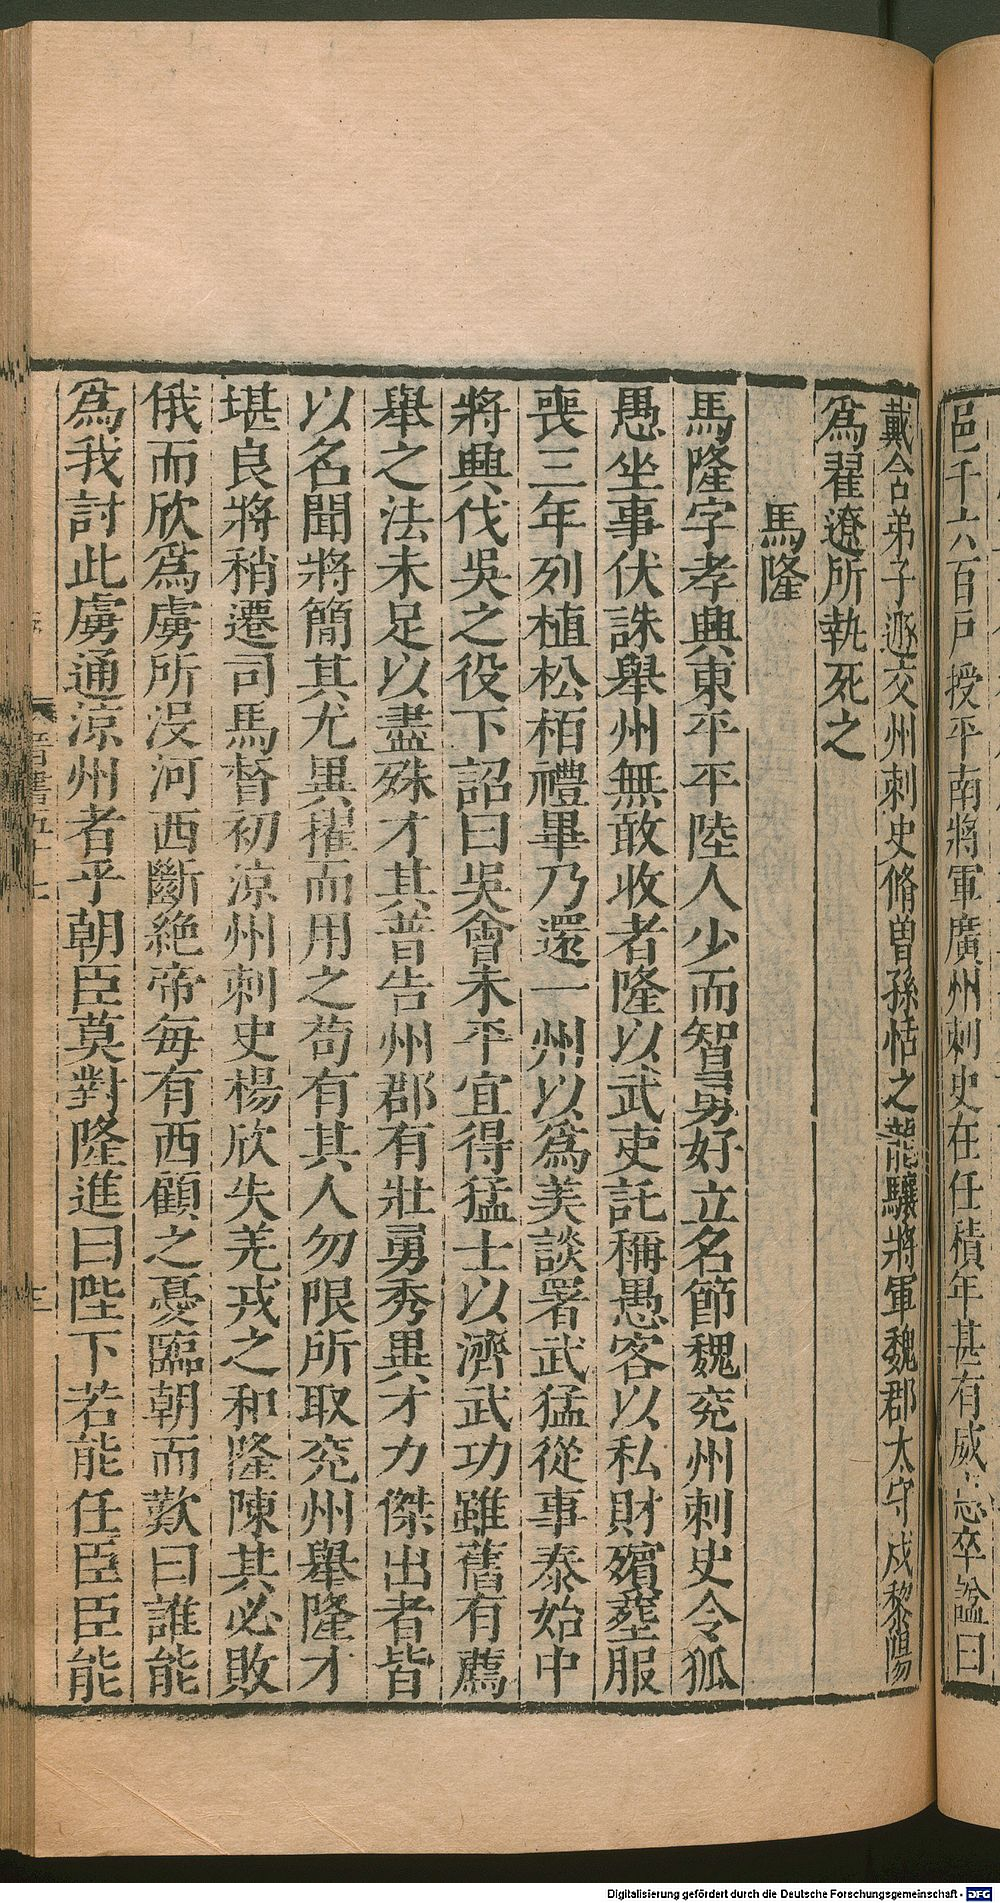 邑千六百戶授平南將軍廣州刺史在任積年甚有威惠卒謚曰
戴含弟子遯交州刺史脩曾孫恬之龍驤將軍魏郡太守戍黎陽
爲翟遼所執死之
馬隆
馬隆字孝興東平平陸人少而智勇好立名節魏兖州刺史令狐
愚坐事伏誅舉州無敢收者隆以武吏託稱愚客以私財殯葬服
喪三年列植松栢禮畢乃還一州以爲美談署武猛從事泰始中
將興伐吳之役下詔曰吳會未平宜得猛士以濟武功雖舊有薦
舉之法未足以盡殊才其普告州郡有壯勇秀異才力傑出者皆
以名聞將簡其尤異擢而用之苟有其人勿限所取兖州舉隆才
堪良將稍遷司馬督初涼州刺史楊欣失羌戎之和隆陳其必敗
俄而欣爲虜所没河西斷絶帝每有西顧之憂臨朝而歎曰誰能
爲我討此虜通涼州者乎朝臣莫對隆進曰陛下若能任臣臣能
晉書五十七
Digitalisierung gefördert durch die Deutsche Forschungsgemeinschaft - DFG